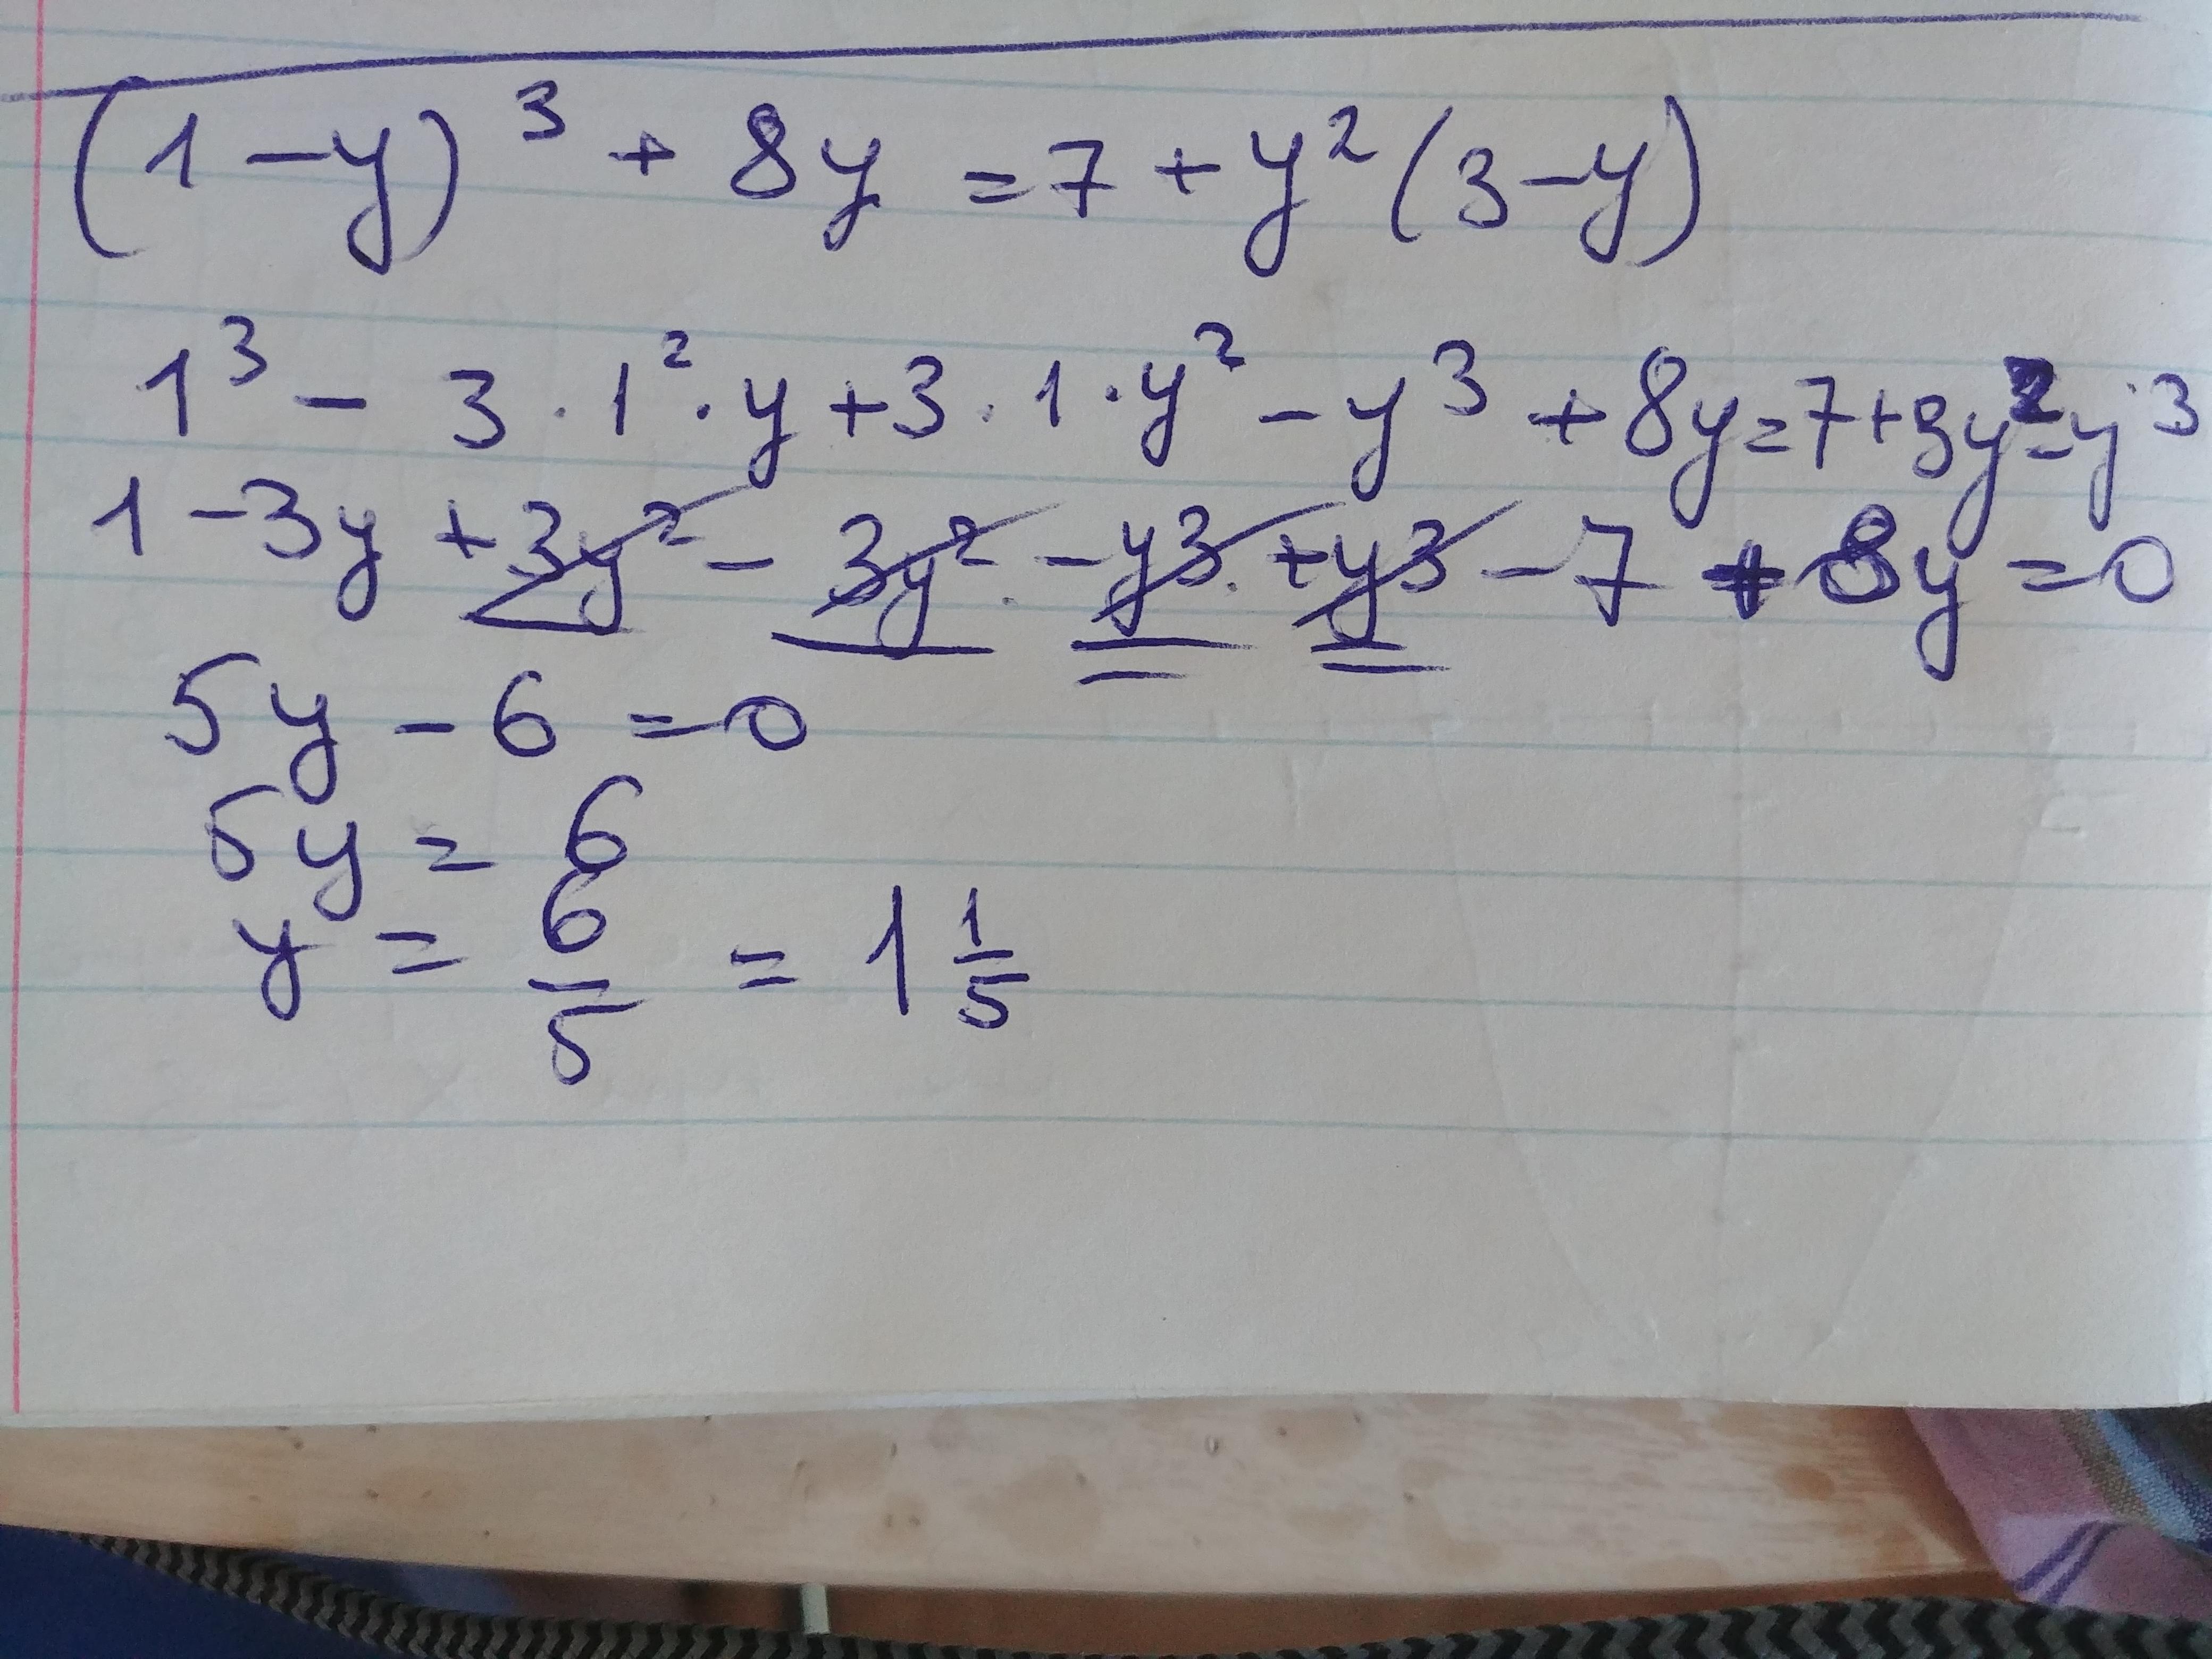 (1-y)³ + 8y = 7 + y²(3-y)
1³ - 3 · 1² · y + 3 · 1 · y² - y³ + 8y = 7 + 3y² - y³
1 - 3y + 3y² - 3y² - y³ + y³ - 7 + 8y = 0
5y - 6 = 0
5y = 6
y = 6/5 = 1 1/5